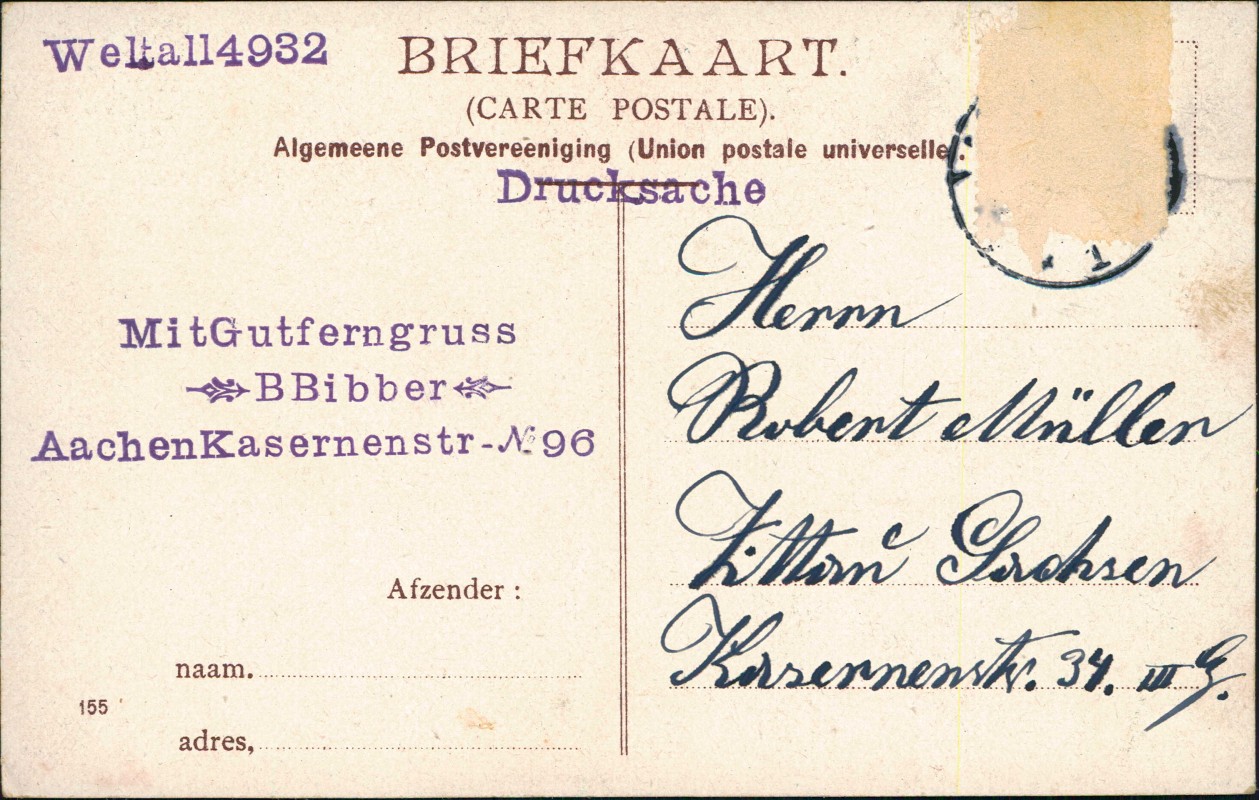 Weltall4932
BRIEFKAART.
(CARTE POSTALE).
Algemeene Postvereeniging (Union postale universelle).
Drucksache
MitGutferngruss
BBibber
AachenKasernenstr-№96
Afzender :
naam.
adres,
155
Herrn
Robert Müller
Zittau Sachsen
Kasernenstr. 34. III G.
1